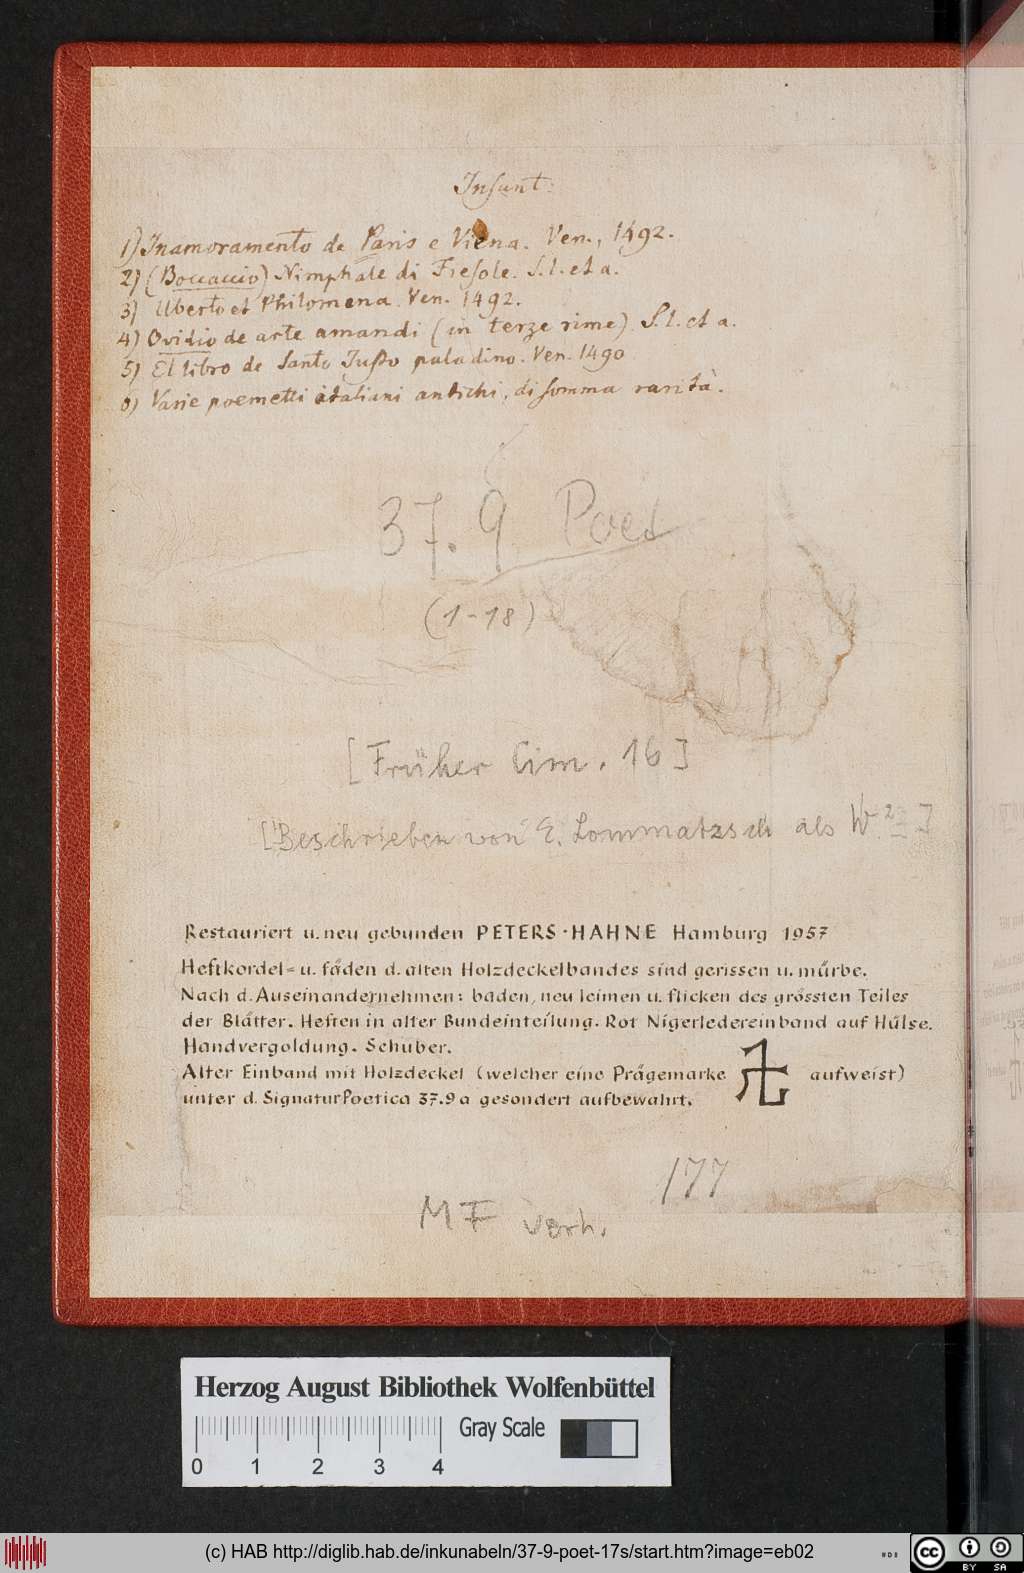 Insunt:
1) Inamoramento de Paris e Viena. Ven., 1492.
2) (Boccaccio) Nimphale di Fiesole. S. l. et a.
3) Uberto et Philomena. Ven. 1492.
4) Ovidio de arte amandi (in terze rime). S. l. et a.
5) El libro de Santo Justo paladino. Ven. 1490
6) Varie poemetti italiani antichi, di somma rarità.
37. 9 Poet
(1-18)
[Früher Cim. 16]
[Beschrieben von E. Lommatzsch als W 2]
Restauriert u. neu gebunden PETERS-HAHNE Hamburg 1957
Heftkordel= u. fäden d. alten Holzdeckelbandes sind gerissen u. mürbe.
Nach d. Auseinandernehmen: baden, neu leimen u. flicken des grössten Teiles
der Blätter. Heften in alter Bundeinteilung. Rot Nigerledereinband auf Hülse.
Handvergoldung. Schuber.
Alter Einband mit Holzdeckel (welcher eine Prägemarke aufweist)
unter d. Signatur Poetica 37.9a gesondert aufbewahrt.
177
MF vorh.
Herzog August Bibliothek Wolfenbüttel
Gray Scale
0 1 2 3 4
(c) HAB http://diglib.hab.de/inkunabeln/37-9-poet-17s/start.htm?image=eb02
cc BY SA